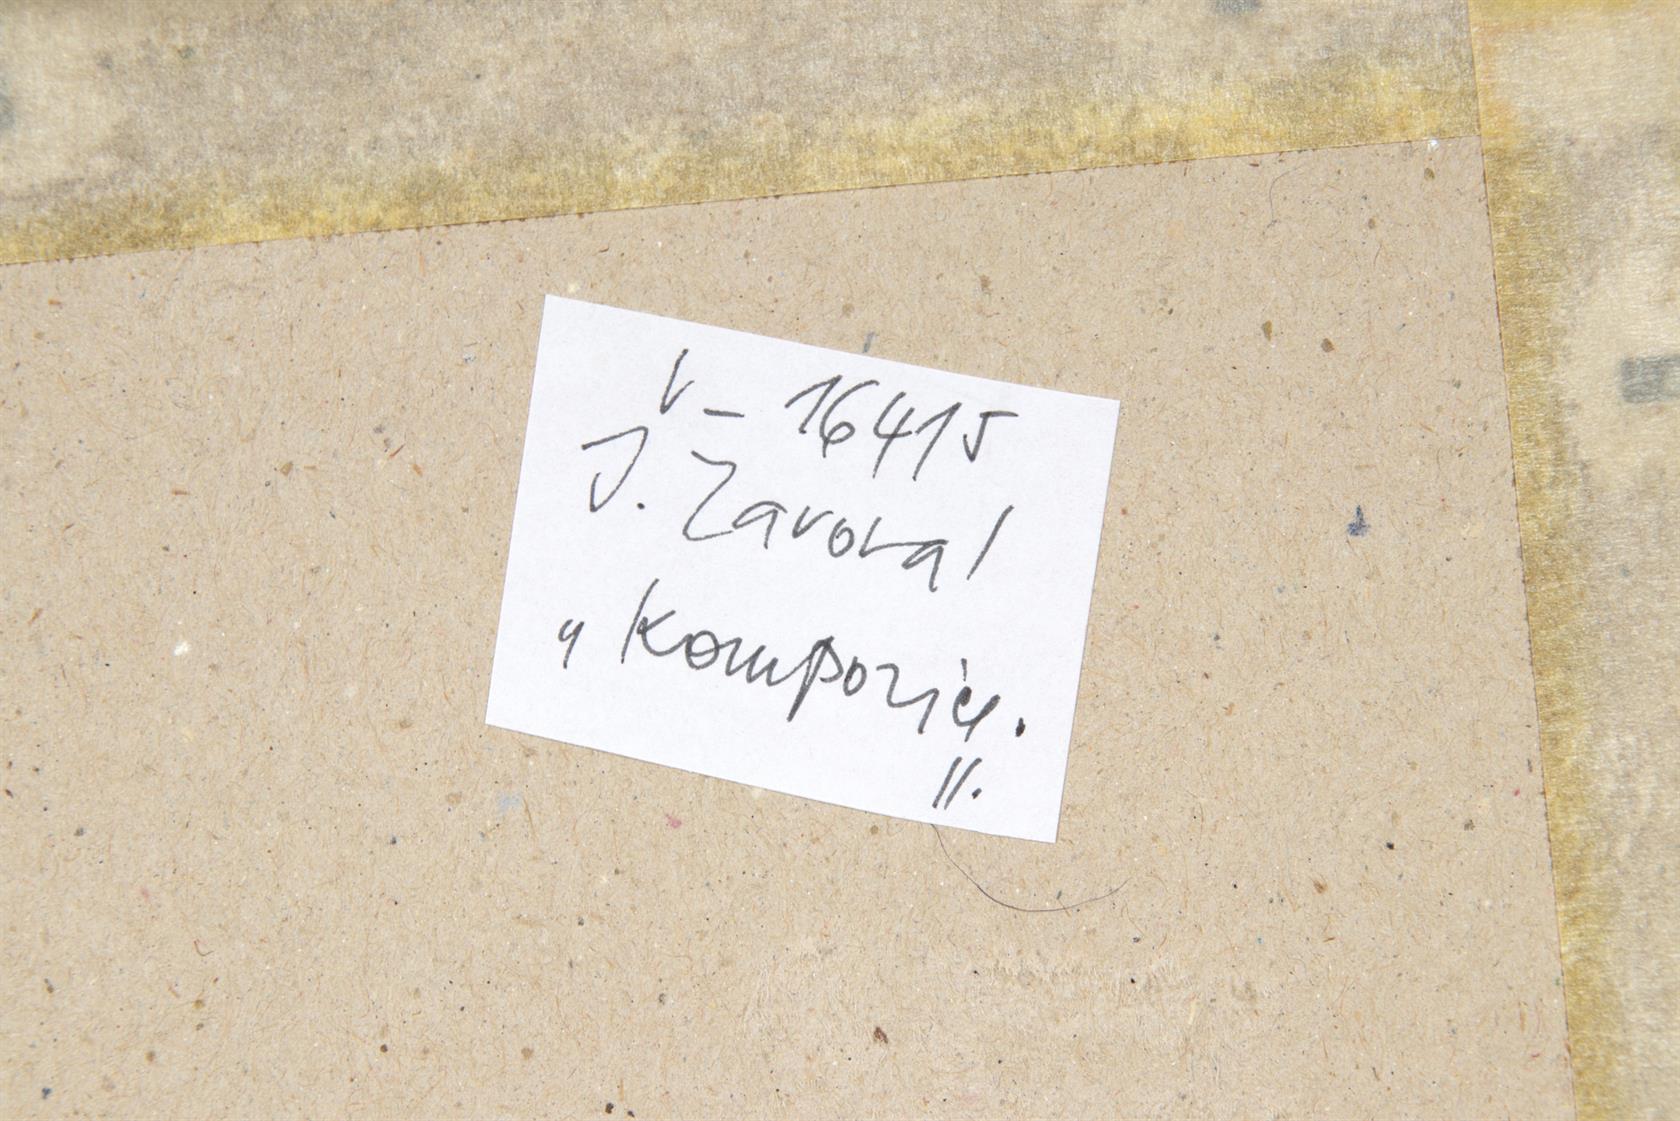 V - 16415
J. Zavoral
"Kompozice.
II.